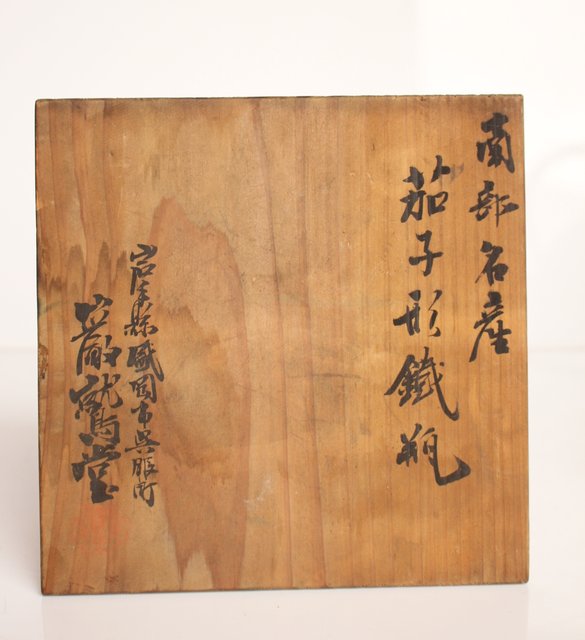 南部名産
茄子形鐵瓶
岩手縣盛岡市呉服町
鷲堂